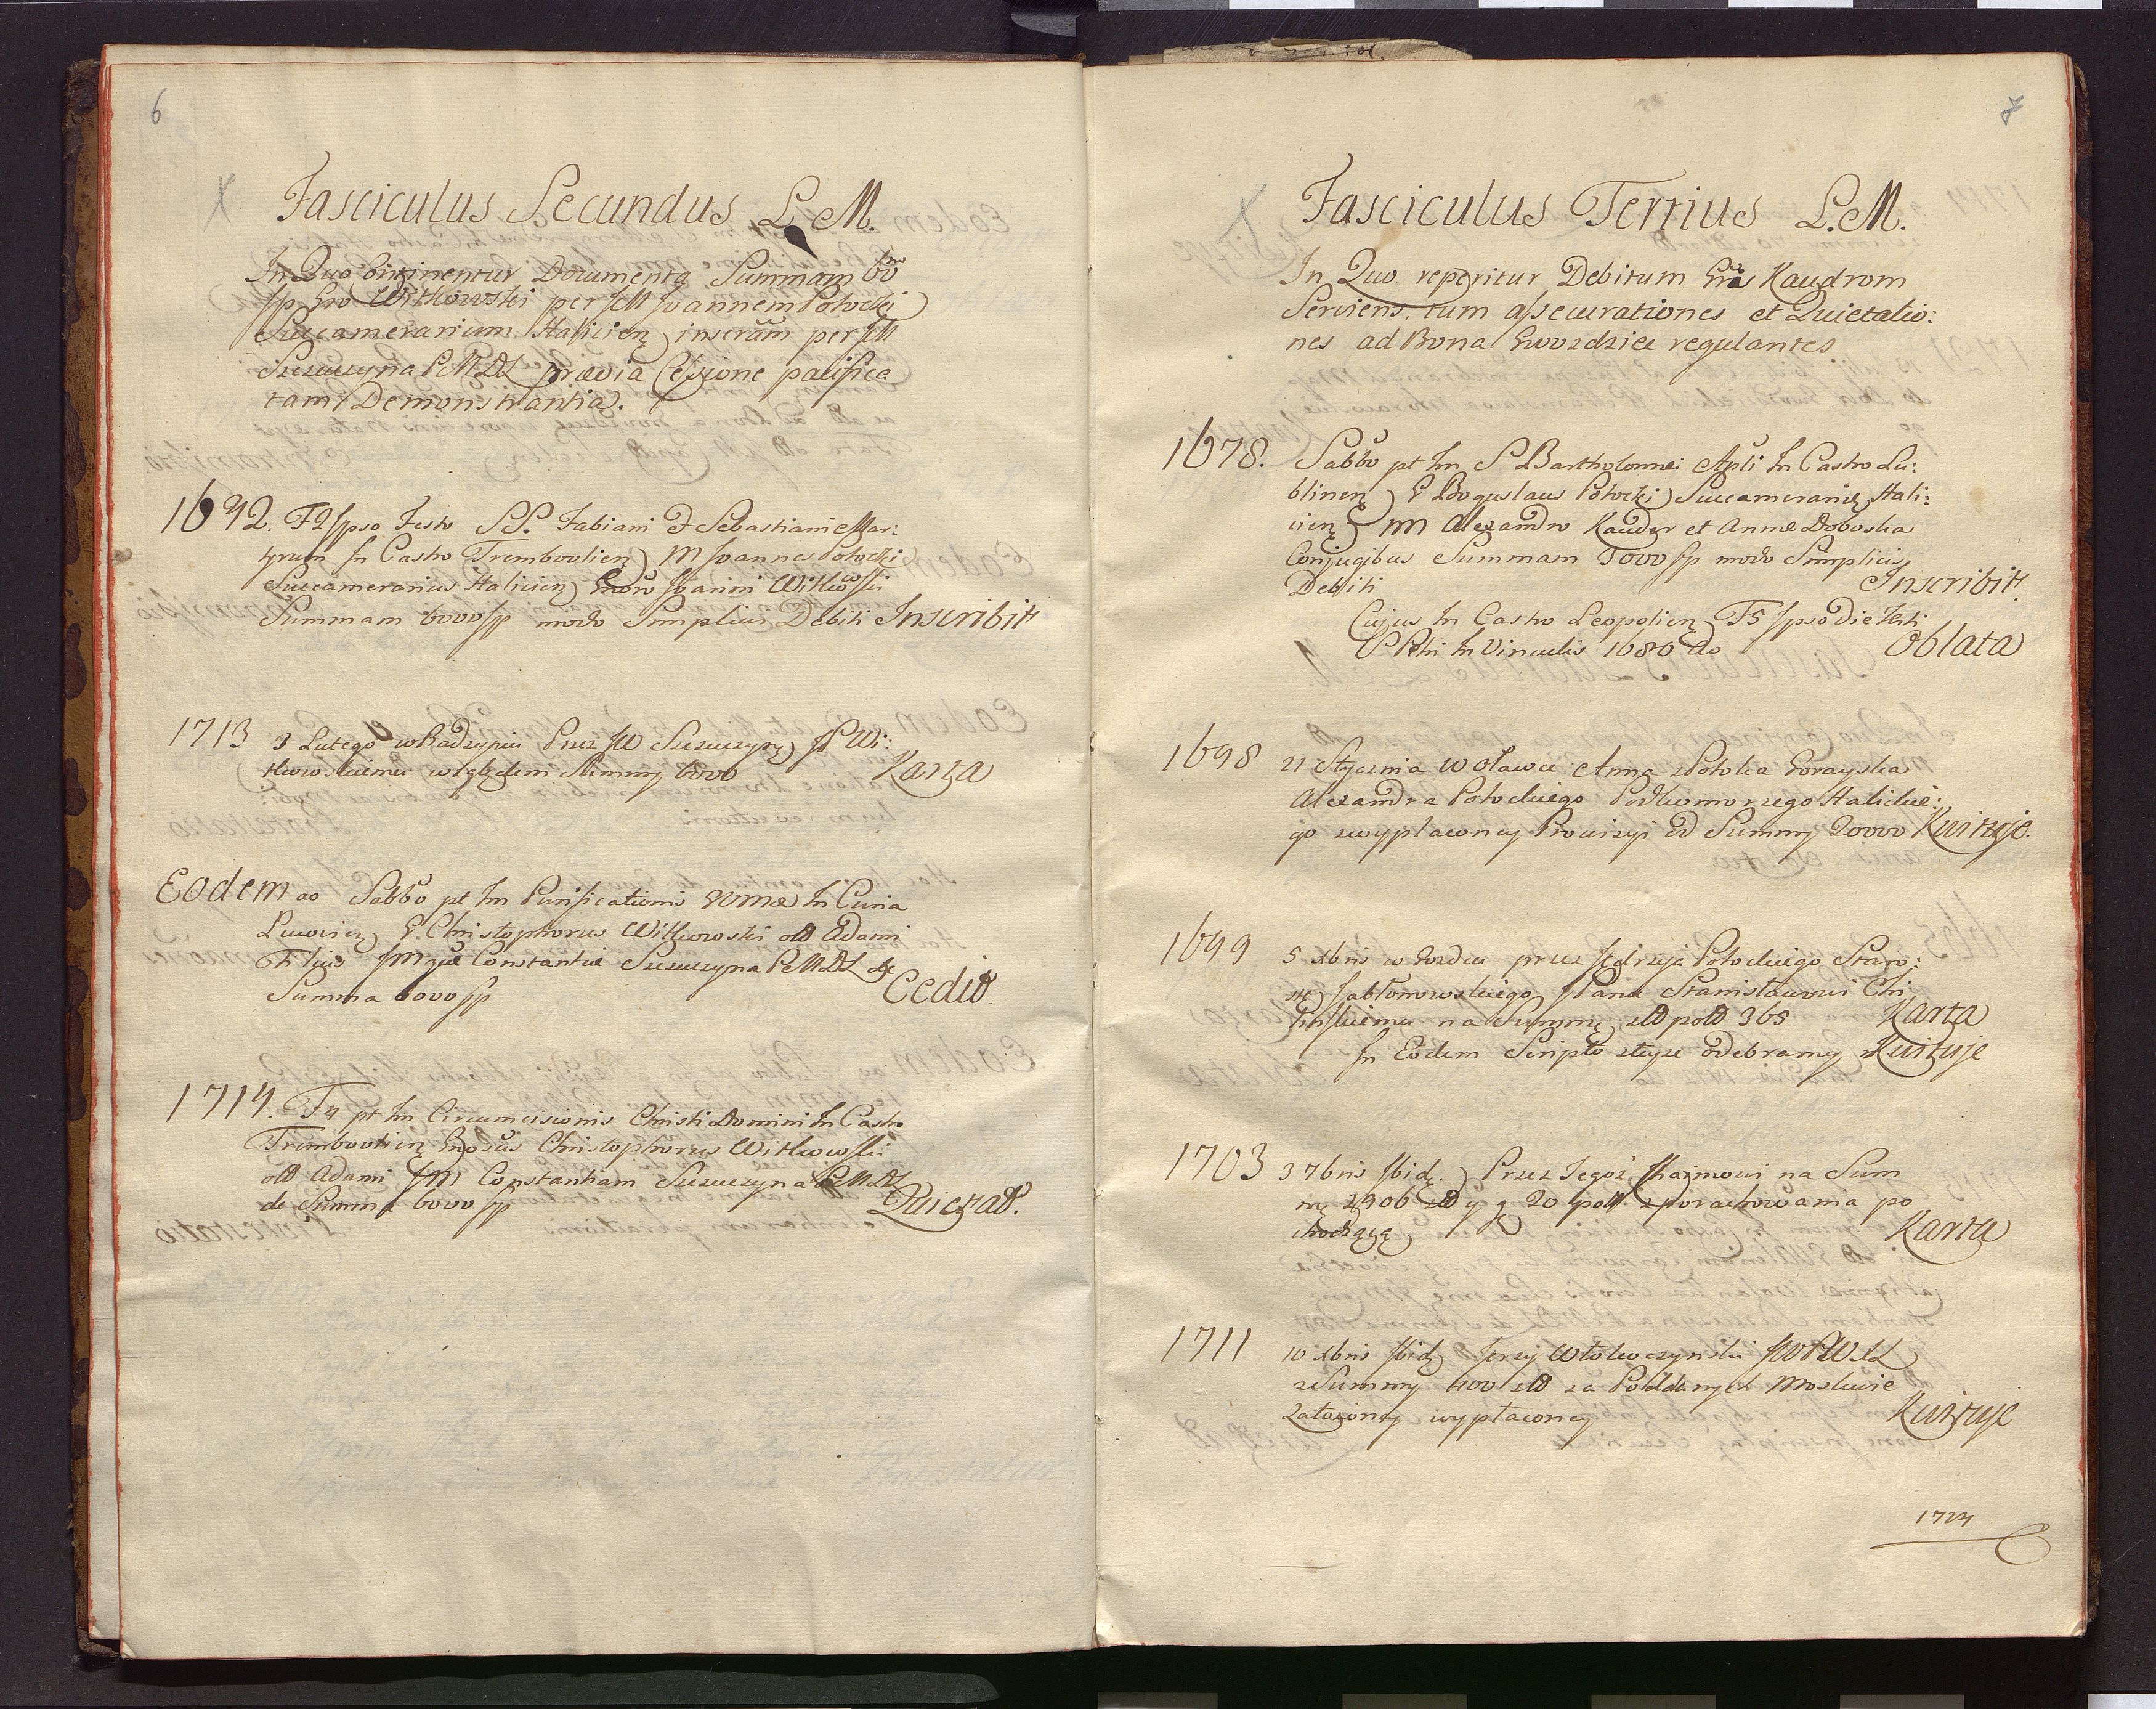 6
Fasciculus Secundus L. M.
In Quo Continentur Documenta Summam 6m
fp Gro Witkowski per JM Joannem Potocki
Succamerarium Halicien inscram per JM
Szczuczyna PMDL prævia Cessione pacifica
tam Demonstrantia.
1692. F2 Ipso Festo SS. Fabiani et Sebastiani Mar:
tyrum In Castro Trembovlien M Joannes Potocki
Succamerarius Halicien Joanni Witkowski
Summam 6000 fp modo Simplicis Debiti Inscribit
1713 3 Lutego w Radzyniu Przez JW Szczuczyny JP Wi:
tkowskiemu względem Summy 6000 Karta
Eodem ao Sabbo pt Fm Purificationis In Curia
Lucorien G. Christophorus Witkowski old Adami
Filius Constantiæ Szczuczyna PMDL de
Summa 6000 fp Cedit.
1714. F4 pt Fm Circumcisionis Christi Domini In Castro
Trembovlien Gnosus Christophorus Witkowski
old Adami JM Constantiam Szczuczyna PMDL
de Summa 6000 fp Quietat.
7
Fasciculus Tertius L. M.
In Quo reperitur Debitum Kaudrom
Serviens, tum assecurationes et Quietatio:
nes ad Bona Gwozdziec regulantes
1678. Sabbo pt Fm S Bartholomei Apli In Castro Lu:
blinen G Boguslaus Potocki Succamerarius Hali:
cien M Alexandro Kauder et Annæ Doboska
Conjugibus Summam 5000 fp modo Simplicis
Debiti Inscribit.
Cujus In Castro Leopolien F5 Ipso die Festi
S Petri In Vinculis 1680 ao Oblata
1698 21 Stycznia w Oławce Anna z Potoka Gorayska
Alexandra Potockiego Podkomorzego Halickie:
go z wypłaconey Prowizyi od Summy 20000 Kwituje.
1699 5 xbris w Gozdcu przez Jędrzeja Potockiego Staro:
stę Jabłonowskiego JPanu Stanisławowi Chi
na Summę zld pold 365 Karta
In Eodem Scripto tejże odebraney Kwituje
1703 3 7bris Ibid. Przez Tegoż Chaimowi na Sum
mę 2906 zld y g 20 pold z porachowania po
chodzącą Karta
1711 10 xbris Ibid Jerzy Wołkoczynski JWPWXL
z Summy 400 zld za Poddanych Moskwie
Założoney wypłaconey Kwituje
1714